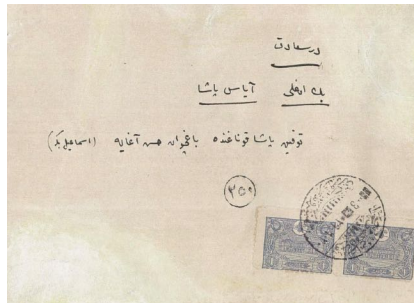 درسعادت
بك اوغلى آياس پاشا
توفيق پاشا قوناغنده باغچوان حسن آغايه (اسماعيل بكر)
٢٥٠
1 1